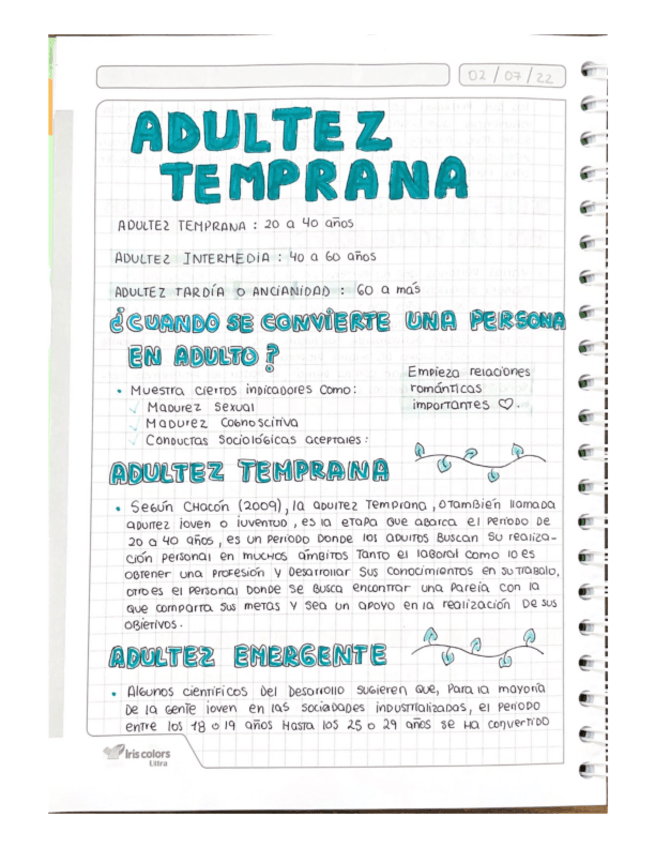 02/07/22
ADULTEZ
TEMPRANA
ADULTEZ TEMPRANA : 20 a 40 años
ADULTEZ INTERMEDIA : 40 a 60 años
ADULTEZ TARDÍA O ANCIANIDAD : 60 a más
¿CUANDO SE CONVIERTE UNA PERSONA
EN ADULTO?
• Muestra ciertos indicadores como:
✓ Madurez Sexual
✓ Madurez Cognoscitiva
✓ Conductas Sociológicas aceptales:
Empieza relaciones
románticas
importantes ♡.
ADULTEZ TEMPRANA
• Según Chacón (2009), la adultez Temprana, o También llamada
adultez joven o juventud, es la etapa que abarca el Período de
20 a 40 años, es un Período donde los adultos Buscan Su realiza-
ción Personal en muchos ámbitos Tanto el laboral como lo es
obtener una Profesión y Desarrollar Sus Conocimientos en su trabajo,
otro es el Personal Donde se Busca encontrar una Pareja con la
que comparta Sus metas y Sea un apoyo en la realización De sus
objetivos.
ADULTEZ EMERGENTE
• Algunos científicos Del Desarrollo Sugieren Que, Para la mayoría
De la Gente joven en las Sociadades industrializadas, el Período
entre los 18 o 19 años Hasta los 25 o 29 años se Ha convertido
Iris colors
Ultra